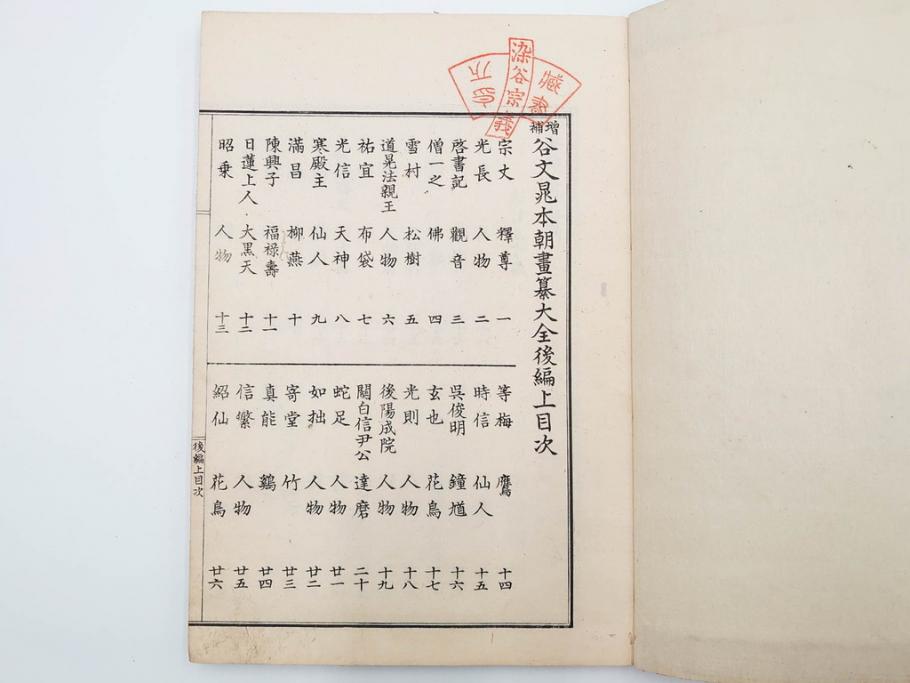 染谷宗義
藏書
増補
谷文晁本朝畫纂大全後編上目次
宗丈 釋尊 一
光長 人物 二
啓書記 觀音 三
僧一之 佛 四
雪村 松樹 五
道晃法親王 人物 六
祐宜 布袋 七
光信 天神 八
寒殿主 仙人 九
滿昌 柳燕 十
陳興子 福禄壽 十一
日蓮上人 大黒天 十二
昭乗 人物 十三
等梅 鷹 十四
時信 仙人 十五
呉俊明 鐘馗 十六
玄也 花鳥 十七
光則 人物 十八
後陽成院 人物 十九
關白信尹公 達磨 二十
蛇足 人物 廿一
如拙 人物 廿二
寄堂 竹 廿三
真能 鷄 廿四
信繁 人物 廿五
紹仙 花鳥 廿六
後編上目次